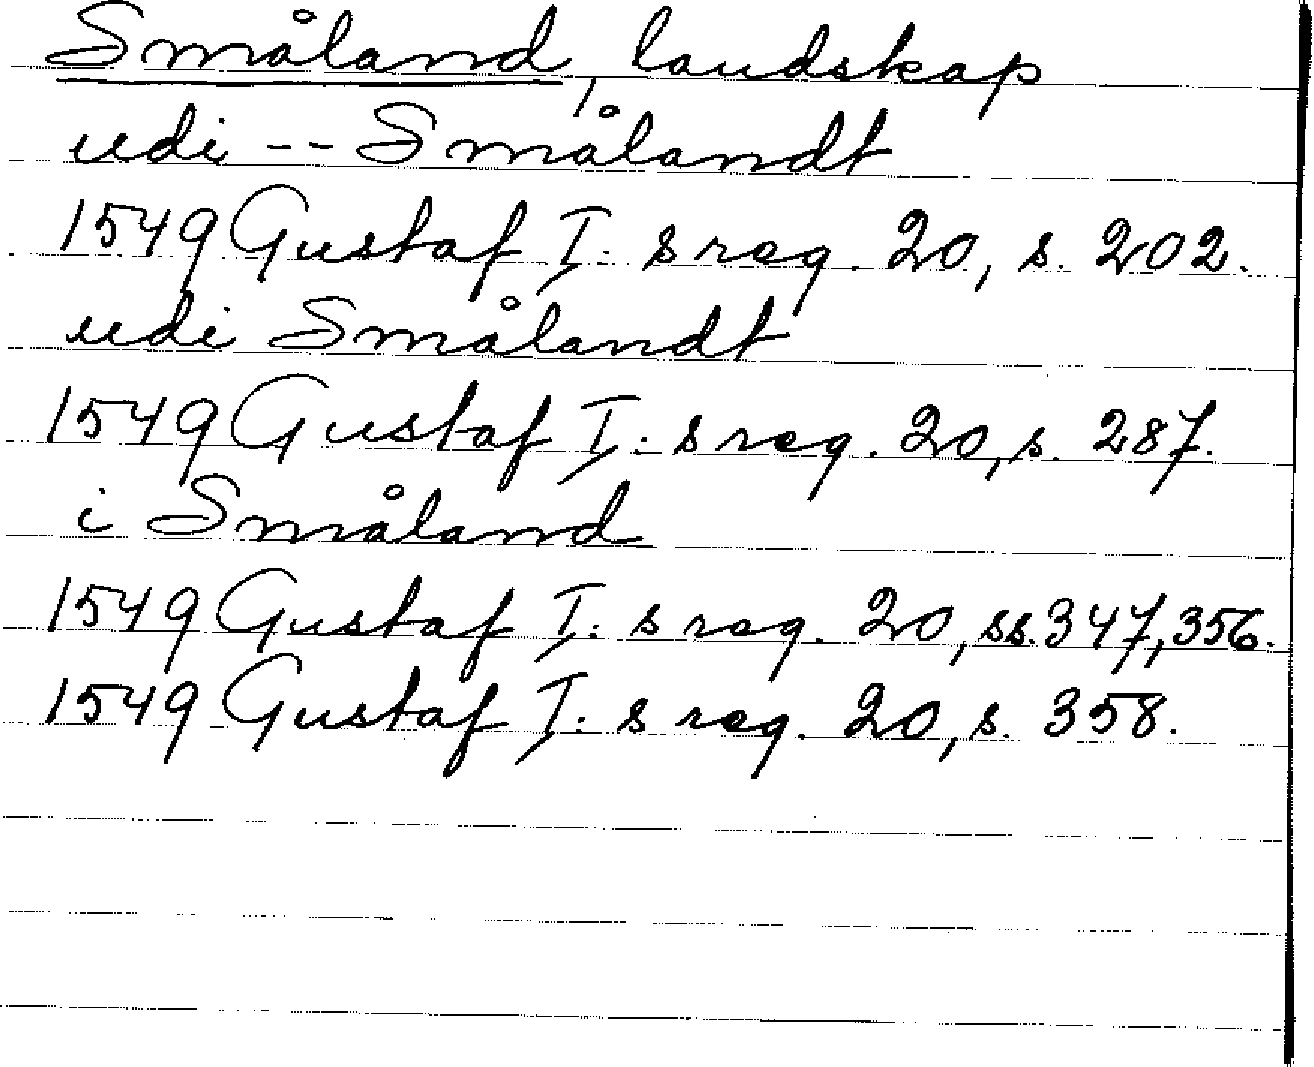 Småland, landskap
udi -- Smålandt
1549 Gustaf I:s reg. 20, s. 202.
udi Smålandt
1549 Gustaf I:s reg. 20, s. 287.
i Småland
1549 Gustaf I:s reg. 20, ss. 347, 356.
1549 Gustaf I:s reg. 20, s. 358.